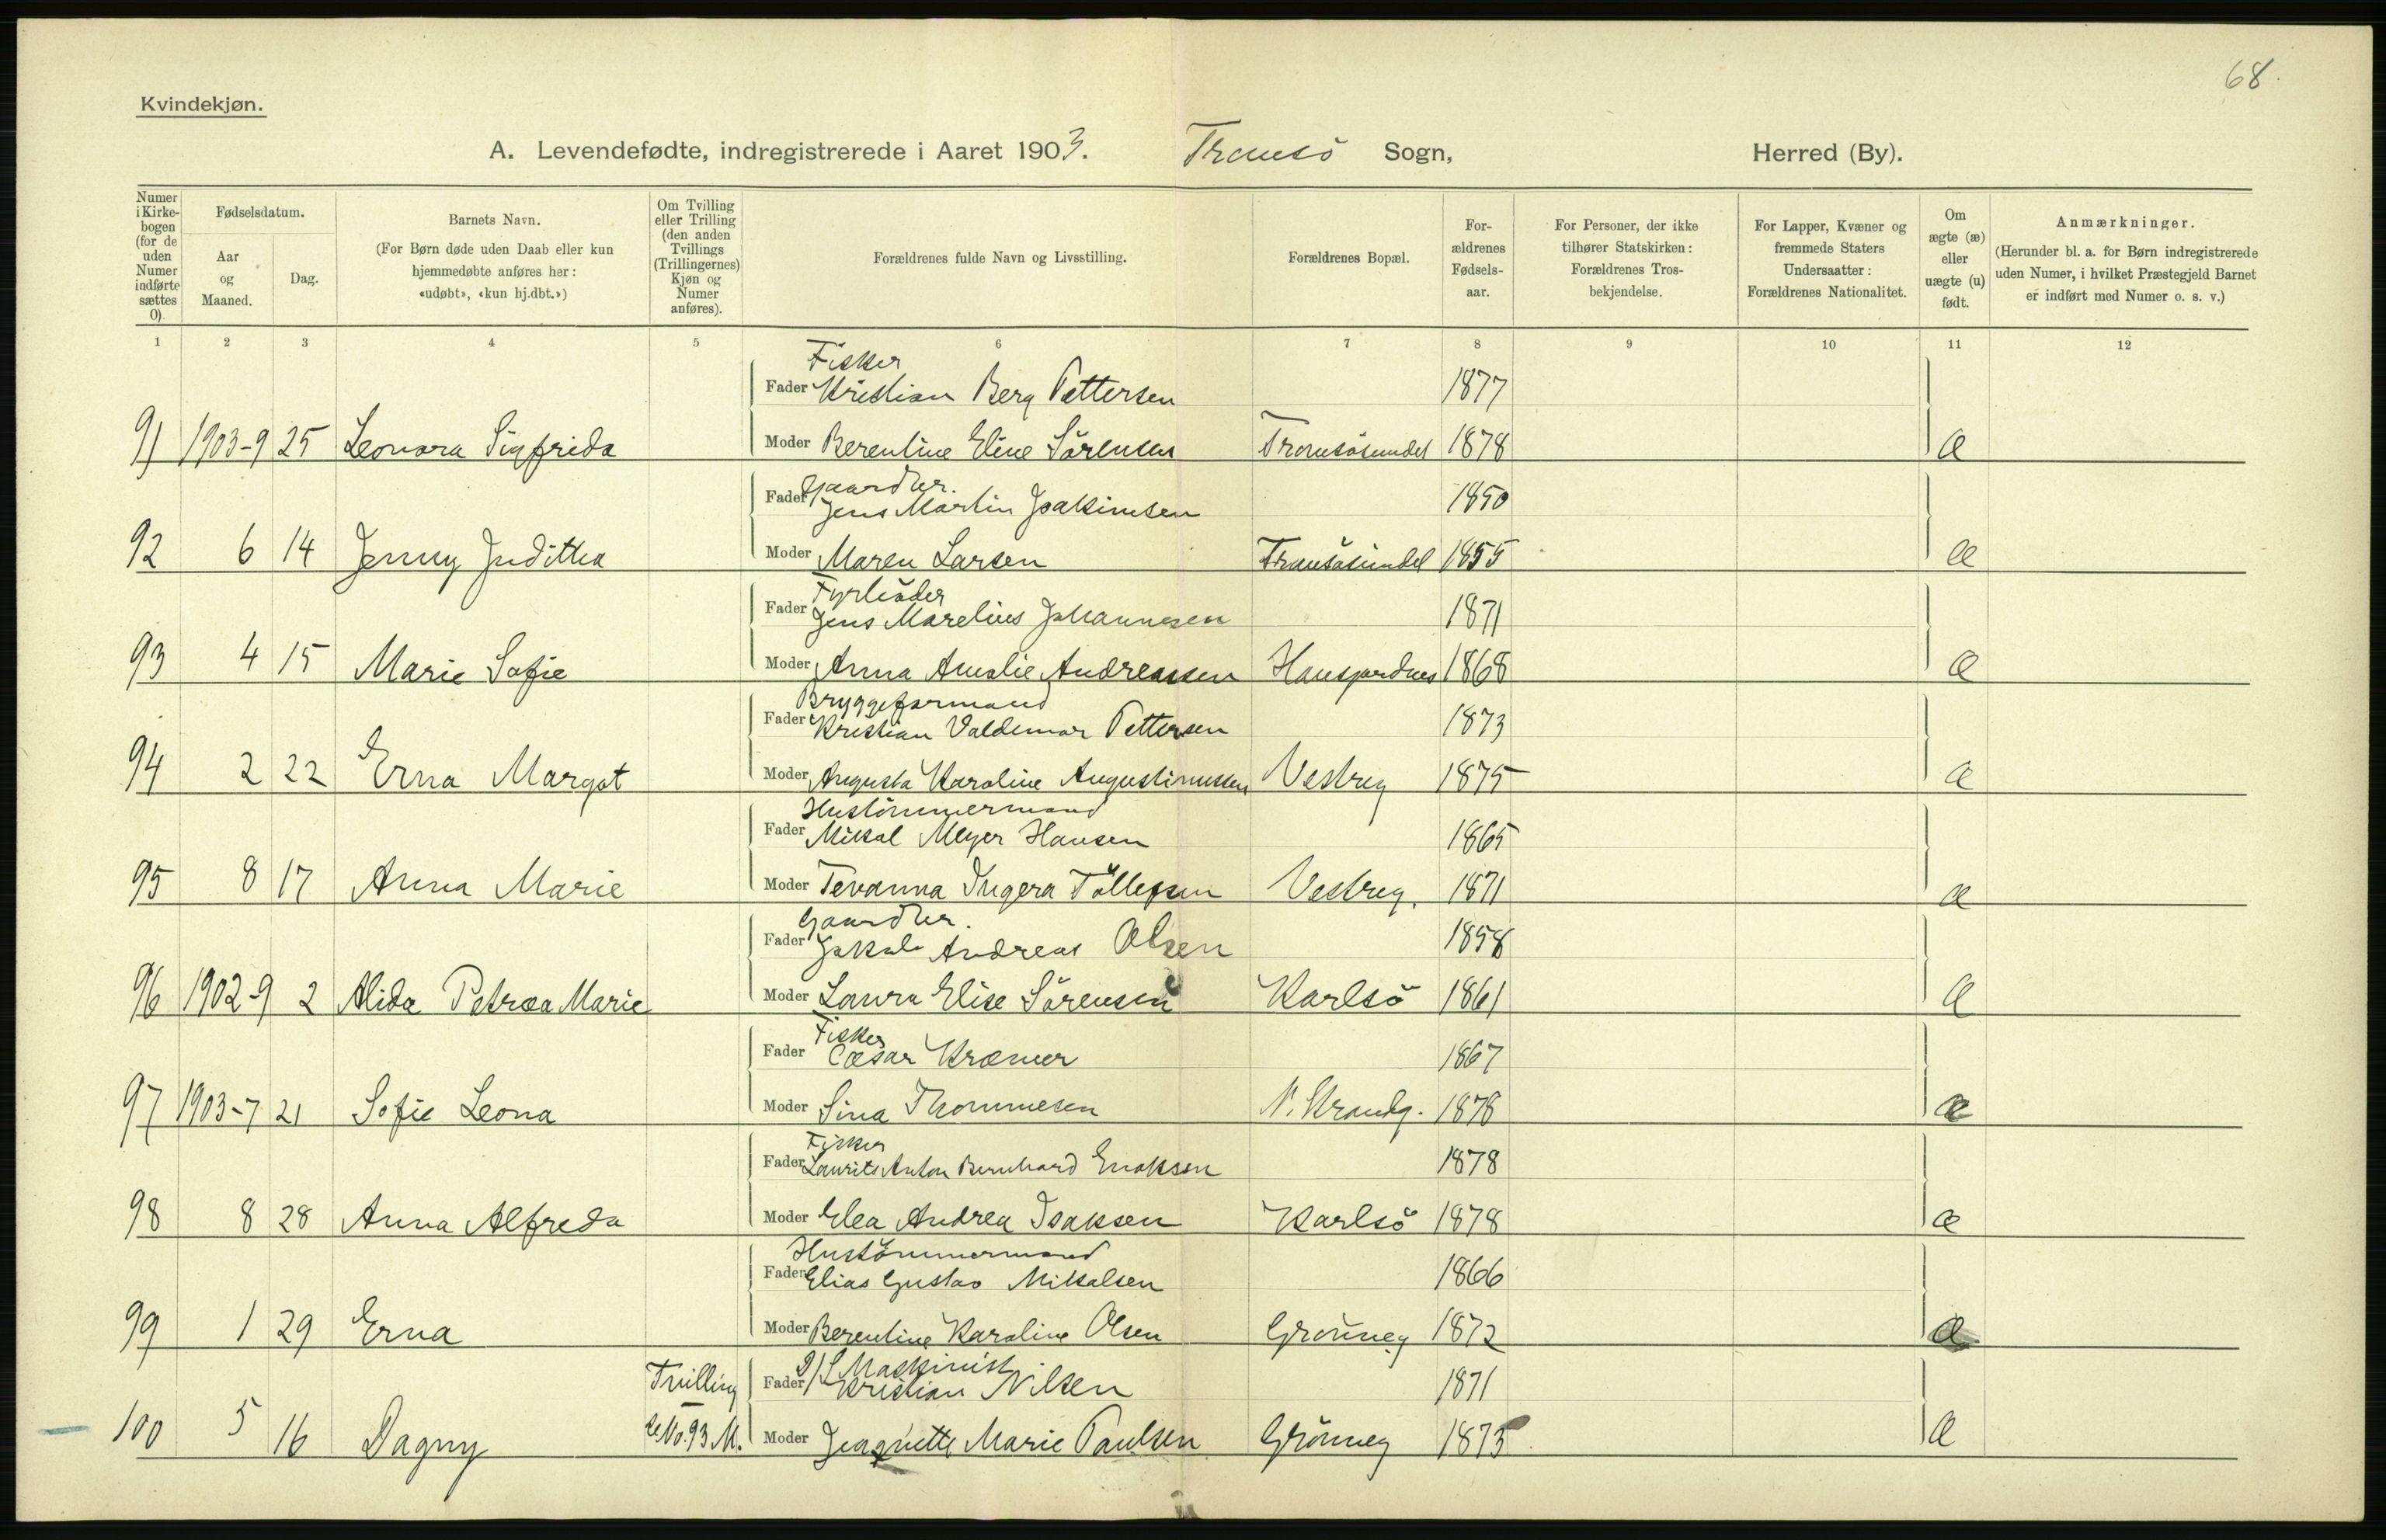 68.
Kvindekjøn.
A. Levendefødte, indregistrerede i Aaret 1903. Tromsö Sogn, Herred (By).
Numer i Kirke-bogen (for de uden Numer indførte sættes 0).
Fødselsdatum.
Aar og Maaned.
Dag.
Barnets Navn.
(For Børn døde uden Daab eller kun hjemmedøbte anføres her: «udøbt», «kun hj.dbt.»)
Om Tvilling eller Trilling (den anden Tvillings (Trillingernes) Kjøn og Numer anføres).
Forældrenes fulde Navn og Livsstilling.
Forældrenes Bopæl.
For-ældrenes Fødsels-aar.
For Personer, der ikke tilhører Statskirken: Forældrenes Tros-bekjendelse.
For Lapper, Kvæner og fremmede Staters Undersaatter: Forældrenes Nationalitet.
Om ægte (æ) eller uægte (u) født.
Anmærkninger.
(Herunder bl. a. for Børn indregistrerede uden Numer, i hvilket Præstegjeld Barnet er indført med Numer o. s. v.)
1 2 3 4 5 6 7 8 9 10 11 12
Fisker
Fader Kristian Berg Pettersen 1877
91 1903-9 25 Leonora Sigfrida Moder Berentine Eline Sörensen Tromsösundet 1878 æ
Gaardbr.
Fader Jens Martin Joakimsen 1850
92 6 14 Jenny Juditha Moder Maren Larsen Tromsösundet 1855 æ
Fyrböder
Fader Jens Marelius Johannesen 1871
93 4 15 Marie Sofie Moder Anna Amalie Andreassen Hansjordnes 1868 æ
Bryggeformand
Fader Kristian Valdemar Pettersen 1873
94 2 22 Erna Margot Moder Augusta Karoline Augustinussen Vestreg 1875 æ
Hustömmermand
Fader Mikal Meyer Hansen 1865
95 8 17 Anna Marie Moder Tevanna Ingera Töllefsen Vestreg. 1871 æ
Gaardbr.
Fader Jakob Andreas Olsen 1858
96 1902-9 2 Alida Petræa Marie Moder Laura Elise Sörensen Karlsö 1861 æ
Fisker
Fader Cæsar Kræmer 1867
97 1903-7 21 Sofie Leona Moder Sina Thommesen N. Strandg. 1878 æ
Fisker
Fader Laurits Anton Bernhard Enoksen 1878
98 8 28 Anna Alfreda Moder Elea Andrea Isaksen Karlsö 1878 æ
Hustömmermand
Fader Elias Gustav Mikalsen 1866
99 1 29 Erna Moder Berentine Karoline Olsen Grönneg 1872 æ
Tvilling D/S Maskinist
Fader Kristian Nilsen 1871
100 5 16 Dagny se No. 93 M. Moder Jeagnette Marie Paulsen Grönneg 1873 æ